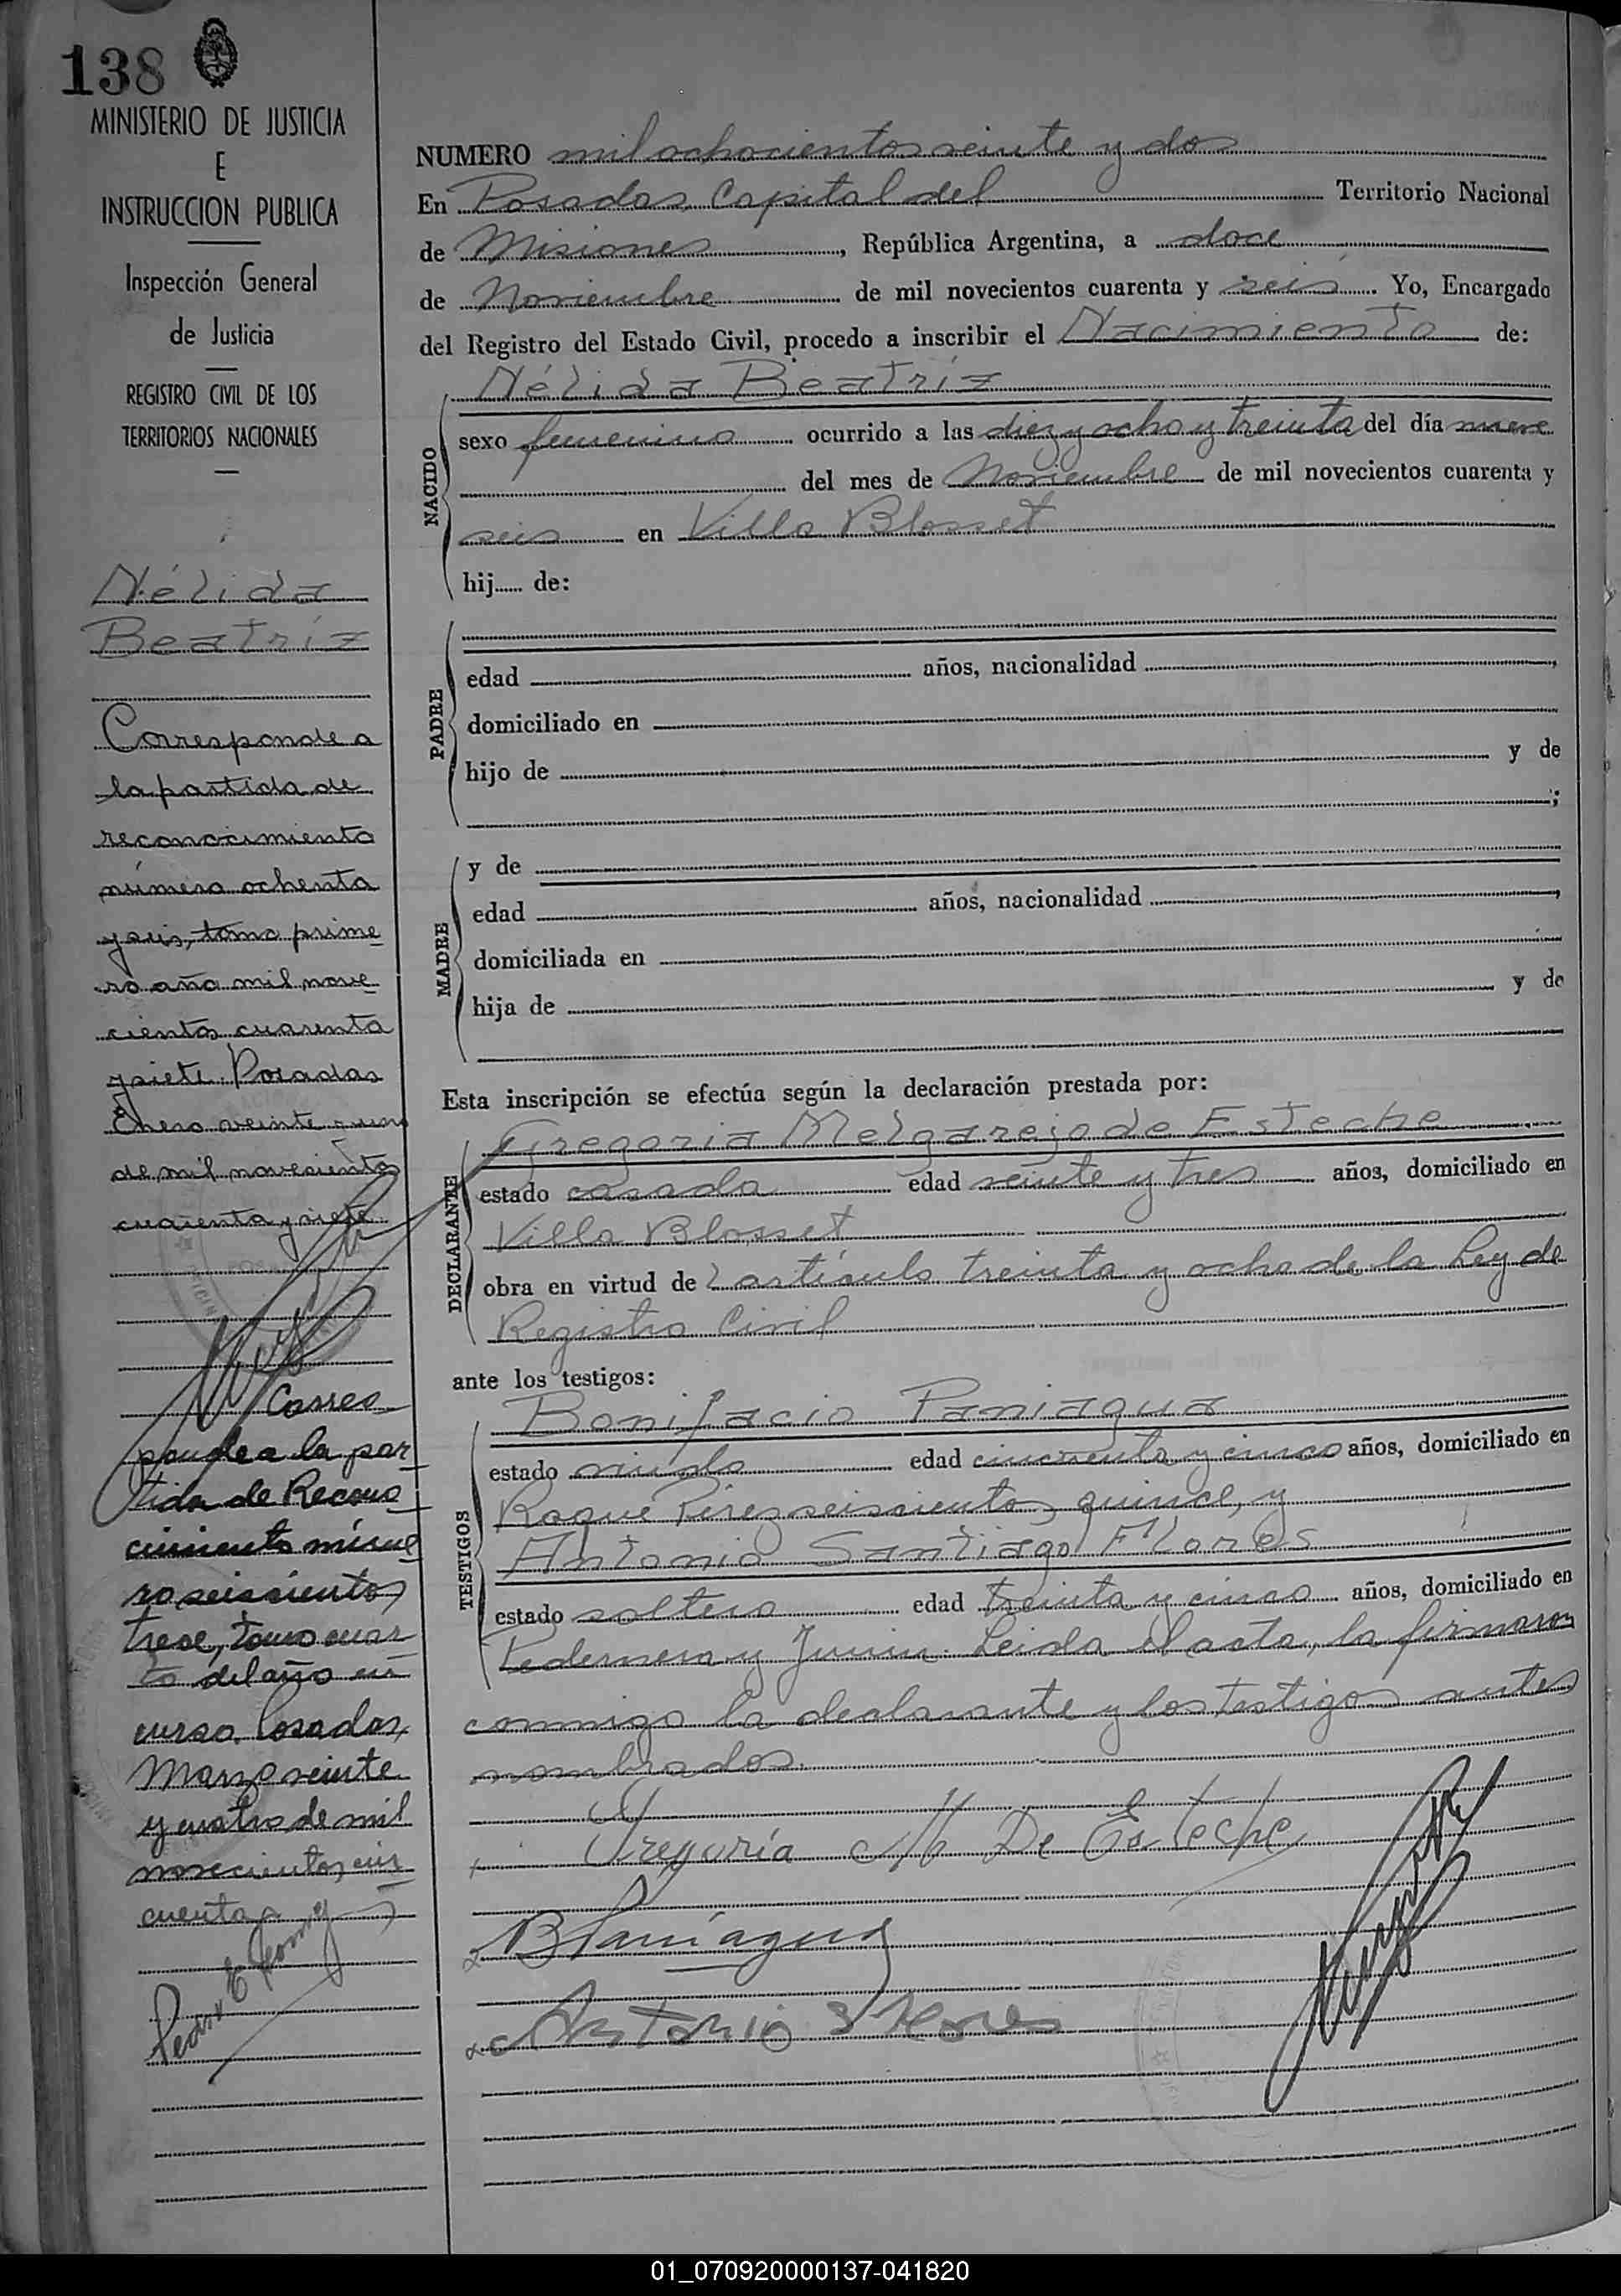 138
MINISTERIO DE JUSTICIA
E
INSTRUCCION PUBLICA
Inspección General
de Justicia
REGISTRO CIVIL DE LOS
TERRITORIOS NACIONALES
Nélida
Beatríz
Corresponde a
la partida de
reconocimiento
número ochenta
y seis, tomo prime
ro año mil nove
cientos cuarenta
y siete. Posadas
Enero veinte y uno
de mil novecientos
cuarenta y siete
Corres
ponde a la par
tida de Recono
cimiento núme
ro seiscientos
trece, tomo cuar
to del año en
curso. Posadas,
Marzo veinte
y cuatro de mil
novecientos cin
cuenta
NUMERO mil ochocientos veinte y dos
En Posadas, Capital del Territorio Nacional
de Misiones, República Argentina, a doce
de Noviembre de mil novecientos cuarenta y seis. Yo, Encargado
del Registro del Estado Civil, procedo a inscribir el Nacimiento de:
Nélida Beatríz
NACIDO
sexo femenino ocurrido a las diez y ocho y treinta del día nueve
del mes de Noviembre de mil novecientos cuarenta y
seis en Villa Blosset
hij...... de:
PADRE
edad años, nacionalidad
domiciliado en
hijo de y de
;
MADRE
y de
edad años, nacionalidad
domiciliada en
hija de y de
Esta inscripción se efectúa según la declaración prestada por:
DECLARANTE
Gregoria Melgarejo de Esteche
estado casada edad veinte y tres años, domiciliado en
Villa Blosset
obra en virtud del artículo treinta y ocho de la Ley de
Registro Civil
ante los testigos:
TESTIGOS
Bonifacio Paniagua
estado viudo edad cincuenta y cinco años, domiciliado en
Roque Pérez seiscientos quince, y
Antonio Santiago Flores
estado soltero edad treinta y cinco años, domiciliado en
Pedernera y Junín. Leída el acta, la firmaron
conmigo la declarante y los testigos antes
nombrados.
Gregoria M De Esteche
B Paniagua
Antonio S Flores
01_070920000137-041820